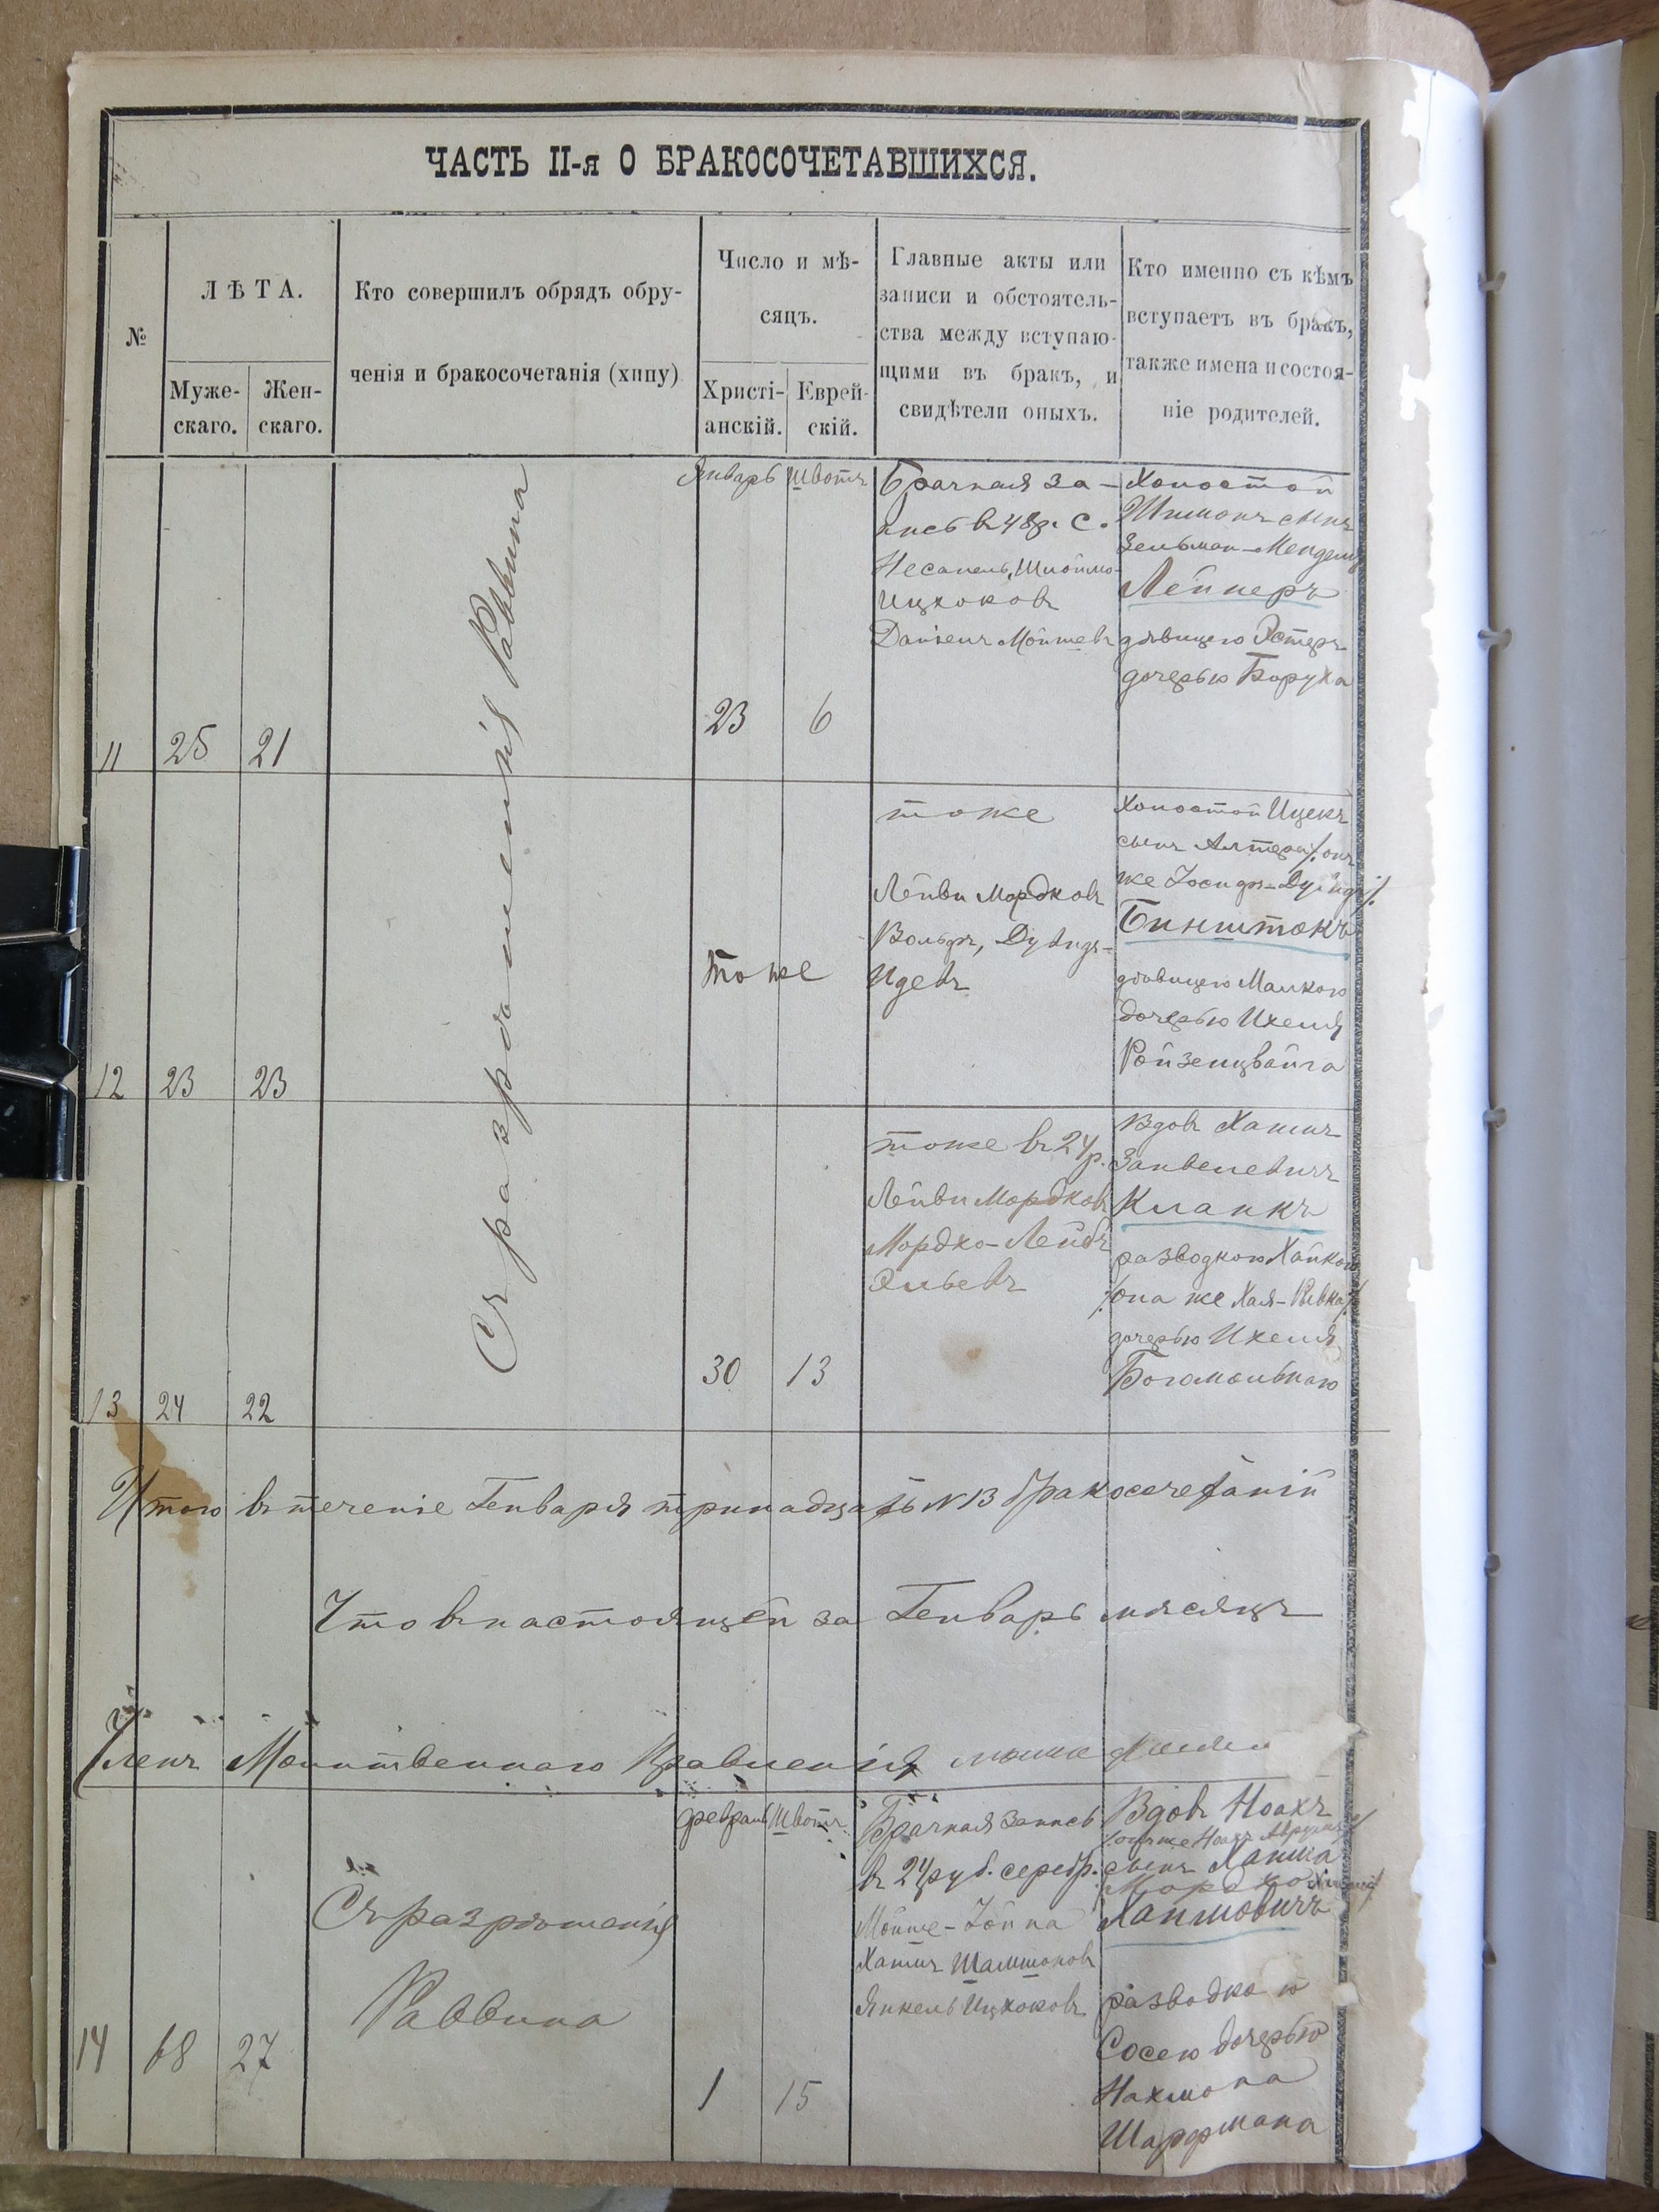 ЧАСТЬ II-я О БРАКОСОЧЕТАВШИХСЯ.
№
ЛѢТА.
Муже-
скаго.
Жен-
скаго.
Кто совершилъ обрядъ обру-
ченія и бракосочетанія (хипу)
Число и мѣ-
сяцъ.
Христі-
анскій.
Еврей-
скій.
Главные акты или
записи и обстоятель-
ства между вступаю-
щими въ бракъ, и
свидѣтели оныхъ.
Кто именно съ кѣмъ
вступаетъ въ бракъ,
также имена и состоя-
ніе родителей.
Съ разрѣшенія Раввина
11
25
21
Январь
Шватъ
23
6
Брачная за-
пись въ 48 р. с.
Несанель, Шлоймо-
Ицхоковъ
Даніель Мойшевъ
Холостой
Шимонъ сынъ
Зельман-Мендель
Лейнеръ
дѣвицею Эстеръ
дочерью Боруха
12
23
23
тоже
тоже
Лейви Мордковъ
Вольфъ, Дувидъ-
Идевъ
Холостой Ицекъ
сынъ Алтера /: онъ
же Іосифъ-Дувидъ :/
Бинштокъ
дѣвицею Малкою
дочерью Ихеля
Ройзенцвайга
13
24
22
30
13
тоже въ 24 р.
Лейви Мордковъ
Мордко-Лейбъ
Эльевъ
Вдовъ Хаимъ
Занвелевичъ
Кланкъ
разводкою Хайкою
/: она же Хая-Ривка :/
дочерью Ихеля
Богомольнаго
Итого въ теченіе Генваря тринадцать N 13 бракосочетаній
Что въ настоящей за Генварь мѣсяцъ
Членъ Молитвеннаго Правленія
14
68
27
Съ разрѣшенія
Раввина
Февраль
Шватъ
1
15
Брачная запись
въ 24 руб. серебр.
Мойше-Іойна
Хаимъ Шамшоновъ
Янкель Ицхоковъ
Вдовъ Ноахъ
/: онъ же Ноахъ Аврумъ :/
сынъ Хаима
Мордко
Хаимовичъ
разводкою
Сосею дочерью
Нахмона
Шарфмана